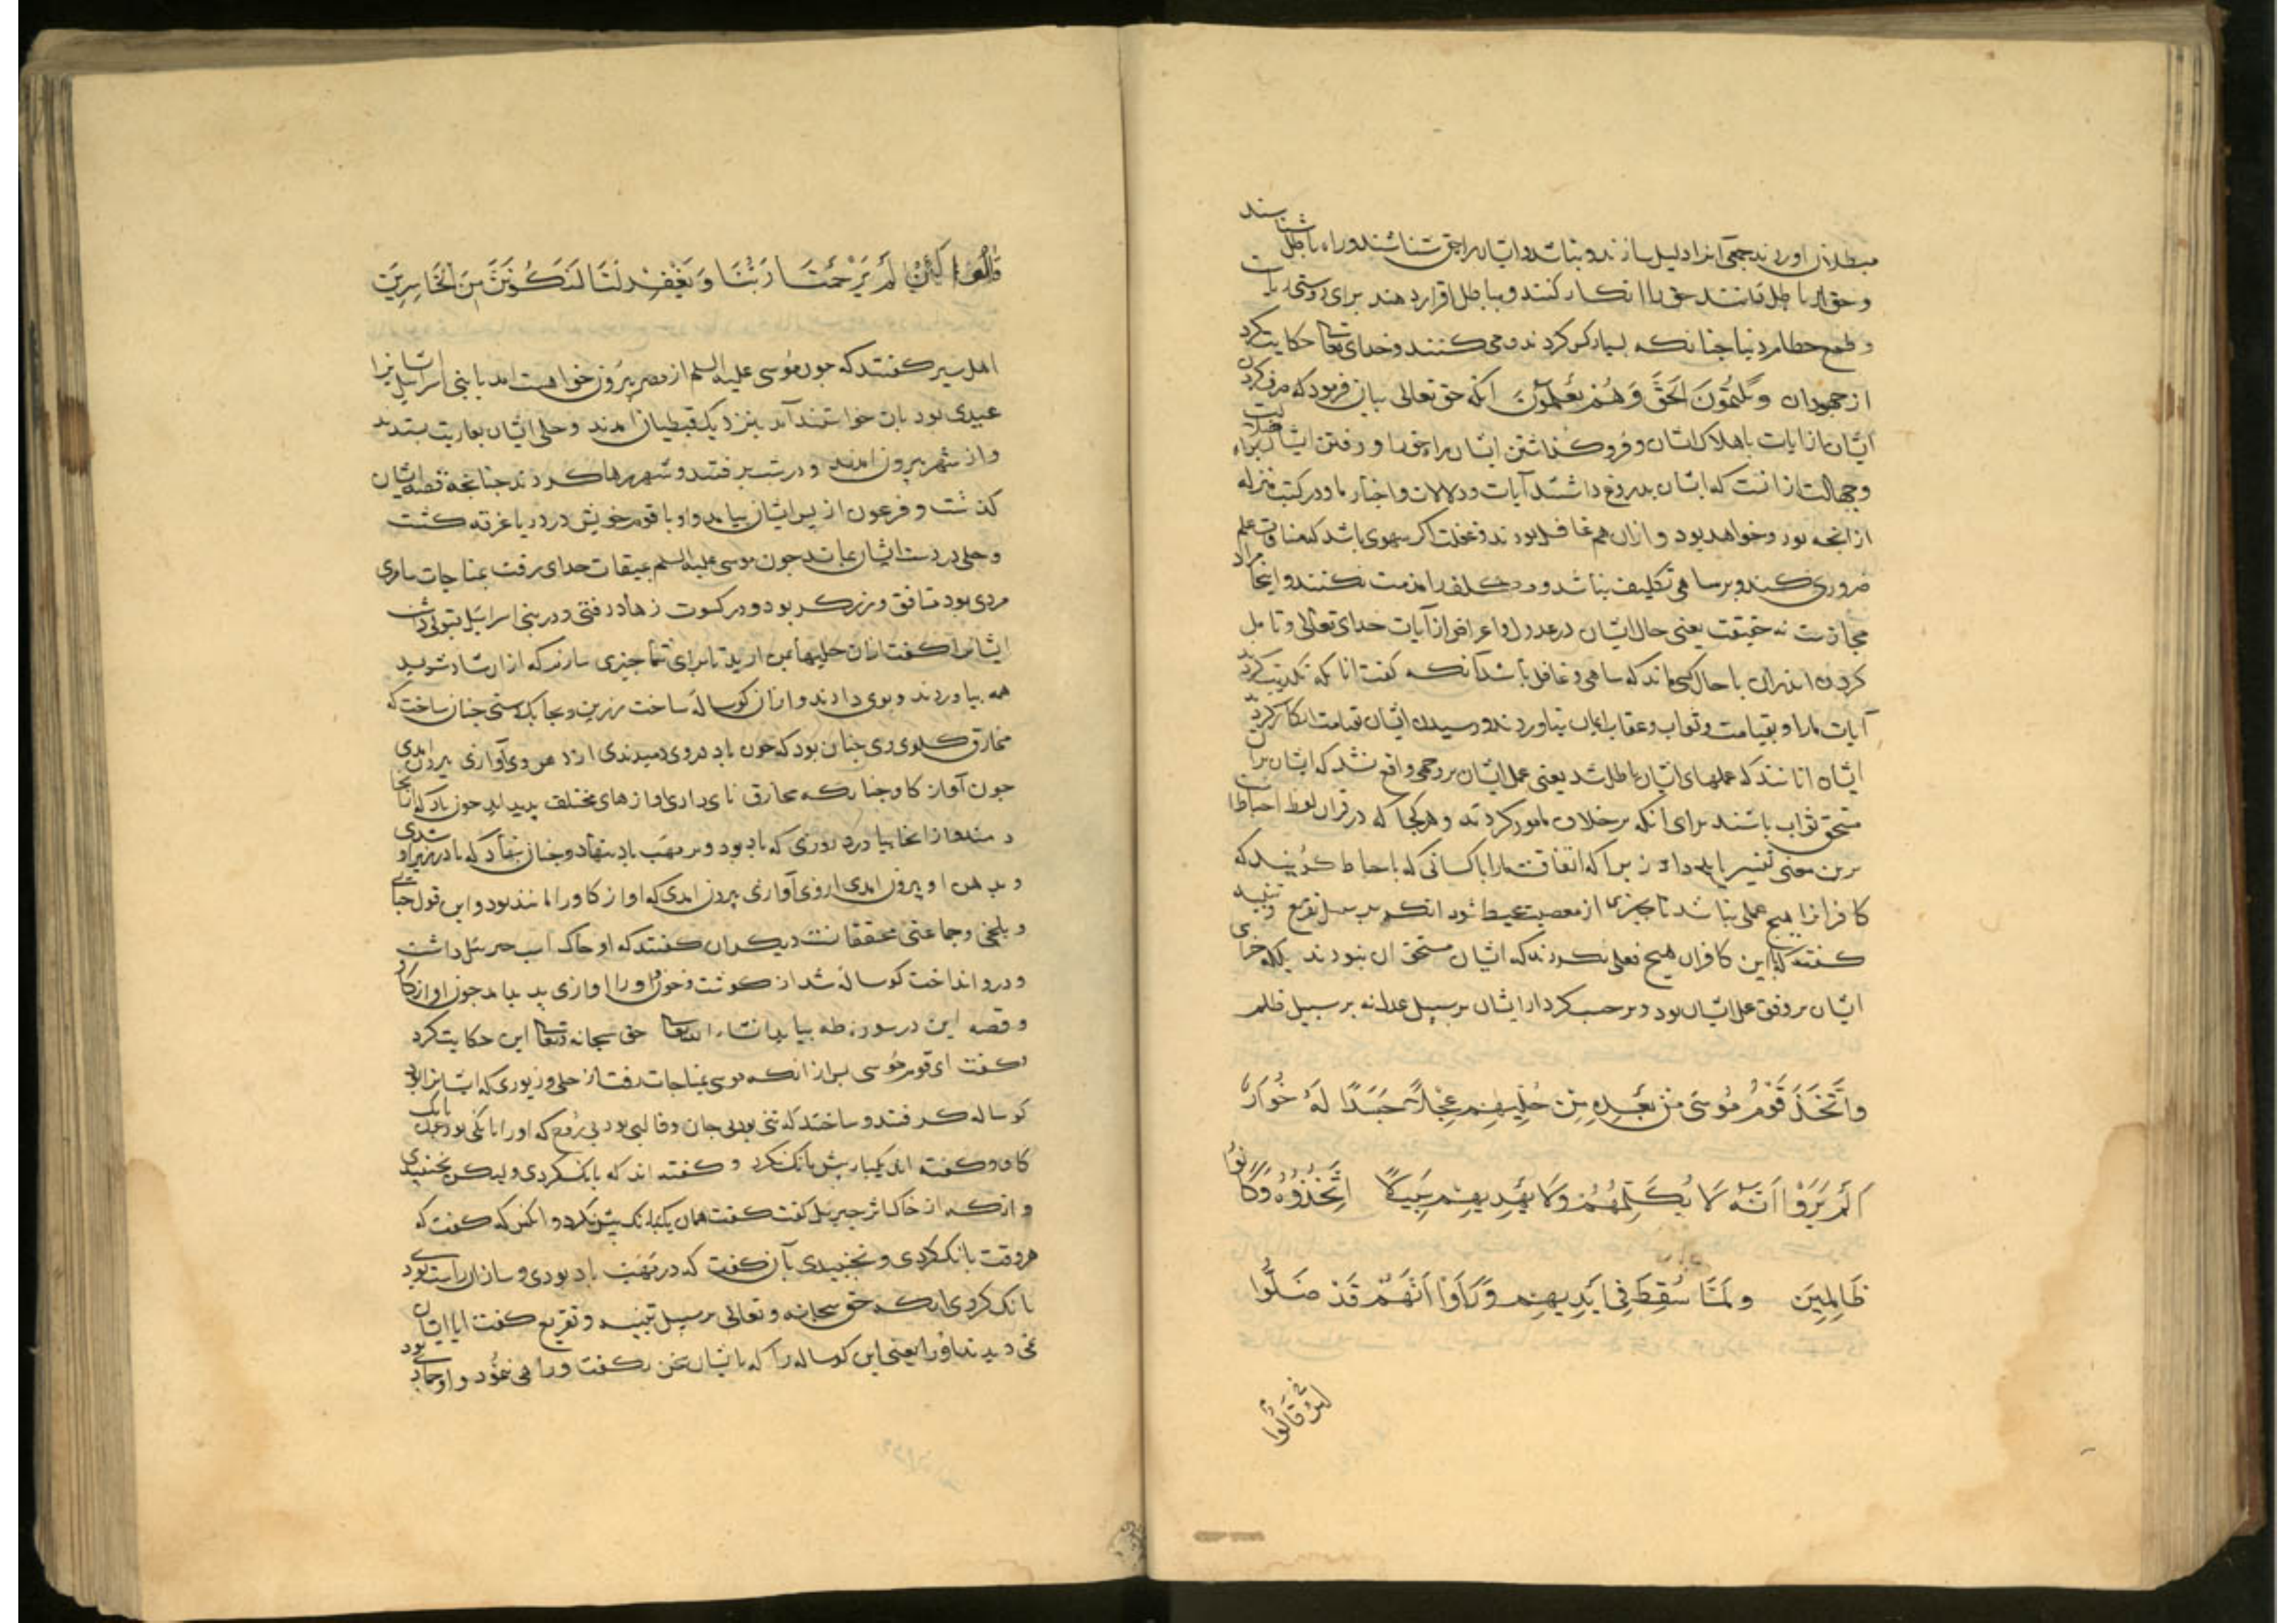 مبطلان اورند حجمی انرا دلیل سازند و نباشد و ایشان را حق شناشند و راه باطل شناسند
و حق را باطل دانند حق را انکار کنند و بباطل اقرار دهند برای دوستی
و طمع حطام دنیا چنانکه بسیار کس کردند و می کنند و خدای تعالی حکایت کرد
از جهودان وَيَكْتُمُونَ الحَقَّ وَهُمْ يَعْلَمُونَ انکه حق تعالی بیان فرمود که صرف کردن
ایشان از ایات باهلاک ایشان و فروگذاشتن ایشان براه خود و رفتن ایشان براه ضلالت
و جهالت ازانست که ایشان بدروغ داشتند آیات و دلالات و اخبار ما و در کتب منزله
از انچه بود و خواهد بود و ازان هم غافل بودند و غفلت اکر سهوی باشد که منافات علم
ضروری کند و بر ساهی تکلیف نباشد و مکلف را مذمت نکنند و اینجا مراد
مجازست نه حقیقت یعنی حال ایشان در عدول و اعراض از آیات خدای تعالی و تامل
کردن اندران با حال کسی ماند که ساهی و غافل باشد آنکه کفت انانکه تکذیب کردند
آیات ما را و بقیامت و ثواب و عقاب ایمان نیاوردند و رسیدن ایشان بقیامت انکار کردند
ایشان انانند که عملهای ایشان باطل شد یعنی عمل ایشان بر وجهی واقع نشد که ایشان بران
مستحق ثواب باشند برای آنکه بر خلاف مامور کردند و هر کجا که در قران لفظ احباطست
برین معنی تفسیر باید داد زیرا که اتفاقست ما را با کسانی که باحباط کویند که
کافرانرا هیچ عملی نباشد تا بچیزی از معصیت محیط شود انکه بر سبیل تقریع و تنبیه
کفت که با این کافران هیچ فعلی نکردند که ایشان مستحق ان نبودند بلکه جزای
ایشان بر وفق عمل ایشان بود و بر حسب کردار ایشان بر سبیل عدل نه بر سبیل ظلم
وَاتَّخَذَ قَوْمُ مُوسَى مِنْ بَعْدِهِ مِنْ حُلِيِّهِمْ عِجْلًا جَسَدًا لَهُ خُوَارٌ
اَلَمْ يَرَوْا اَنَّهُ لَا يُكَلِّمُهُمْ وَلَا يَهْدِيهِمْ سَبِيلًا اتَّخَذُوهُ وَكَانُوا
ظَالِمِينَ وَلَمَّا سُقِطَ فِي اَيْدِيهِمْ وَرَأَوْا اَنَّهُمْ قَدْ ضَلُّوا
قَالُوا لئن
قَالُوا لَئِنْ لَمْ يَرْحَمْنَا رَبُّنَا وَيَغْفِرْ لَنَا لَنَكُونَنَّ مِنَ الْخَاسِرِينَ
اهل سیر کفتند که جون موسی علیه السلم از مصر بیرون خواست امد با بنی اسرایل ایشانرا
عیدی بود بان خواستند آمد بنزدیک قبطیان امدند و حلی ایشان بعاریت بستدند
و از شهر بیرون امدند و در شب برفتند و شهر رها کردند چنانچه قصه ایشان
کذشت و فرعون از پس ایشان بیامد و او با قوم خویش در دریا غرقه کشت
و حلی در دست ایشان بماند جون موسی علیه السلم بمیقات خدای رفت بمناجات سامری
مردی بود منافق و زرکر بود و در کسوت زهاد رفتی و در بنی اسرایل قبولی داشت
ایشانرا کفت ازان حلیها بمن ارید تا برای شما چیزی سازم که ازان شاد شوید
همه بیاوردند و بوی دادند و ازان کوساله ساخت زرین و بچابک دستی چنان ساخت که
مخارق کلوی وی چنان بود که چون باد در وی دمیدندی از دهن وی آوازی بیرون امدی
جون آواز کاو چنانکه مخارق نای دارای اوازهای مختلف پدید اید چون باد که انجا
دمند و از انجا بیامد در روزی که باد بود و بر مهب باد بنهاد و چنان نهاد که باد در زیر او شدی
و بدهن او بیرون امدی از وی آوازی بیرون امدی که اواز کاو را مانند بود و این قول جبایی
و بلخی و جماعتی محققانست دیکران کفتند که او خاک اسب جبرئیل داشت
و درو انداخت کوساله شد از کوشت و خون و او را اوازی پدید امد جون اواز کاو
و قصه این در سوره طه بیاید انشاء الله تعالی حق سبحانه و تعالی این حکایت کرد
کفت ای قوم موسی پس از انکه موسی بمناجات رفت از حلی و زیوری که ایشانرا بود
کوساله کرفتند و ساختند که تنی بود بی جان و قالبی بود بی روح که او را بانکی بود مثل بانک
کاو و کفته اند یکبار بیش بانک نکرد و کفته اند که بانک کردی و لیکن نجنبیدی
و انکه از خاک اثر جبریل کفت کفت همان یکبار بانک بیش نکرد و انکس که کفت که
هر وقت بانک کردی و نجنبیدی بآن کفت که در مهب باد بودی و سازان راست بود
بانک کردی انکه حق سبحانه و تعالی بر سبیل تنبیه و تقریع کفت ایا ایشان
نمی دیدند او را یعنی این کوساله را که با ایشان سخن نکفت و راهی ننمود و او جمادی بود